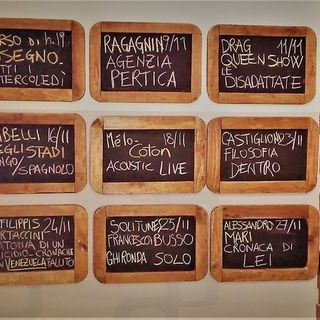 RSO DI h.19
SEGNO.
TTI I
ERCOLEDÌ
RAGAGNIN 9/11
AGENZIA
PERTICA
DRAG 11/11
QUEEN SHOW
LE
DISADATTATE
BELLI 16/11
EGLI STADI
NGO/SPAGNOLO
Mélo- 18/11
Coton
ACOUSTIC LIVE
CASTIGLIONI 23/11
FILOSOFIA
DENTRO
FILIPPIS 24/11
RTACCINI
ATOMIA DI UN
ICIDIO - CRONACHE
N VENEZUELA FALLITO
SOLITUNES 25/11
FRANCESCO BUSSO
GHIRONDA SOLO
ALESSANDRO 27/11
MARI
CRONACA DI
LEI